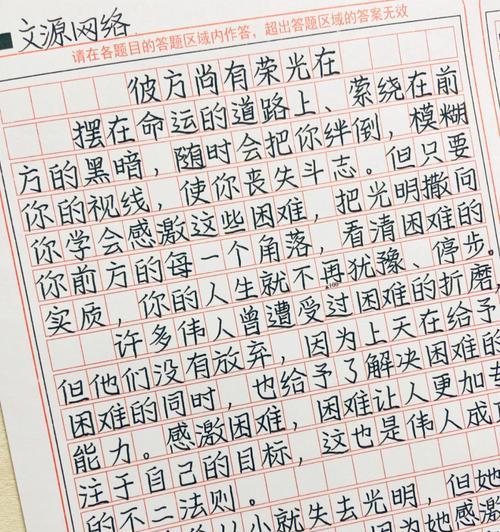 文源网络
请在各题目的答题区域内作答，超出答题区域的答案无效
彼方尚有荣光在
摆在命运的道路上、萦绕在前
方的黑暗，随时会把你绊倒，模糊
你的视线，使你丧失斗志。但只要
你学会感激这些困难，把光明撒间
你前方的每一个角落，看清困难的
实质，你的人生就不再犹豫、停步。
许多伟人曾遭受过困难的折磨，
但他们没有放弃，因为上天在给予
困难的同时，也给予了解决困难的
能力。感激困难，困难让人更加专
注于自己的目标，这也是伟人成
的不二法则。
小就失去光明，但她